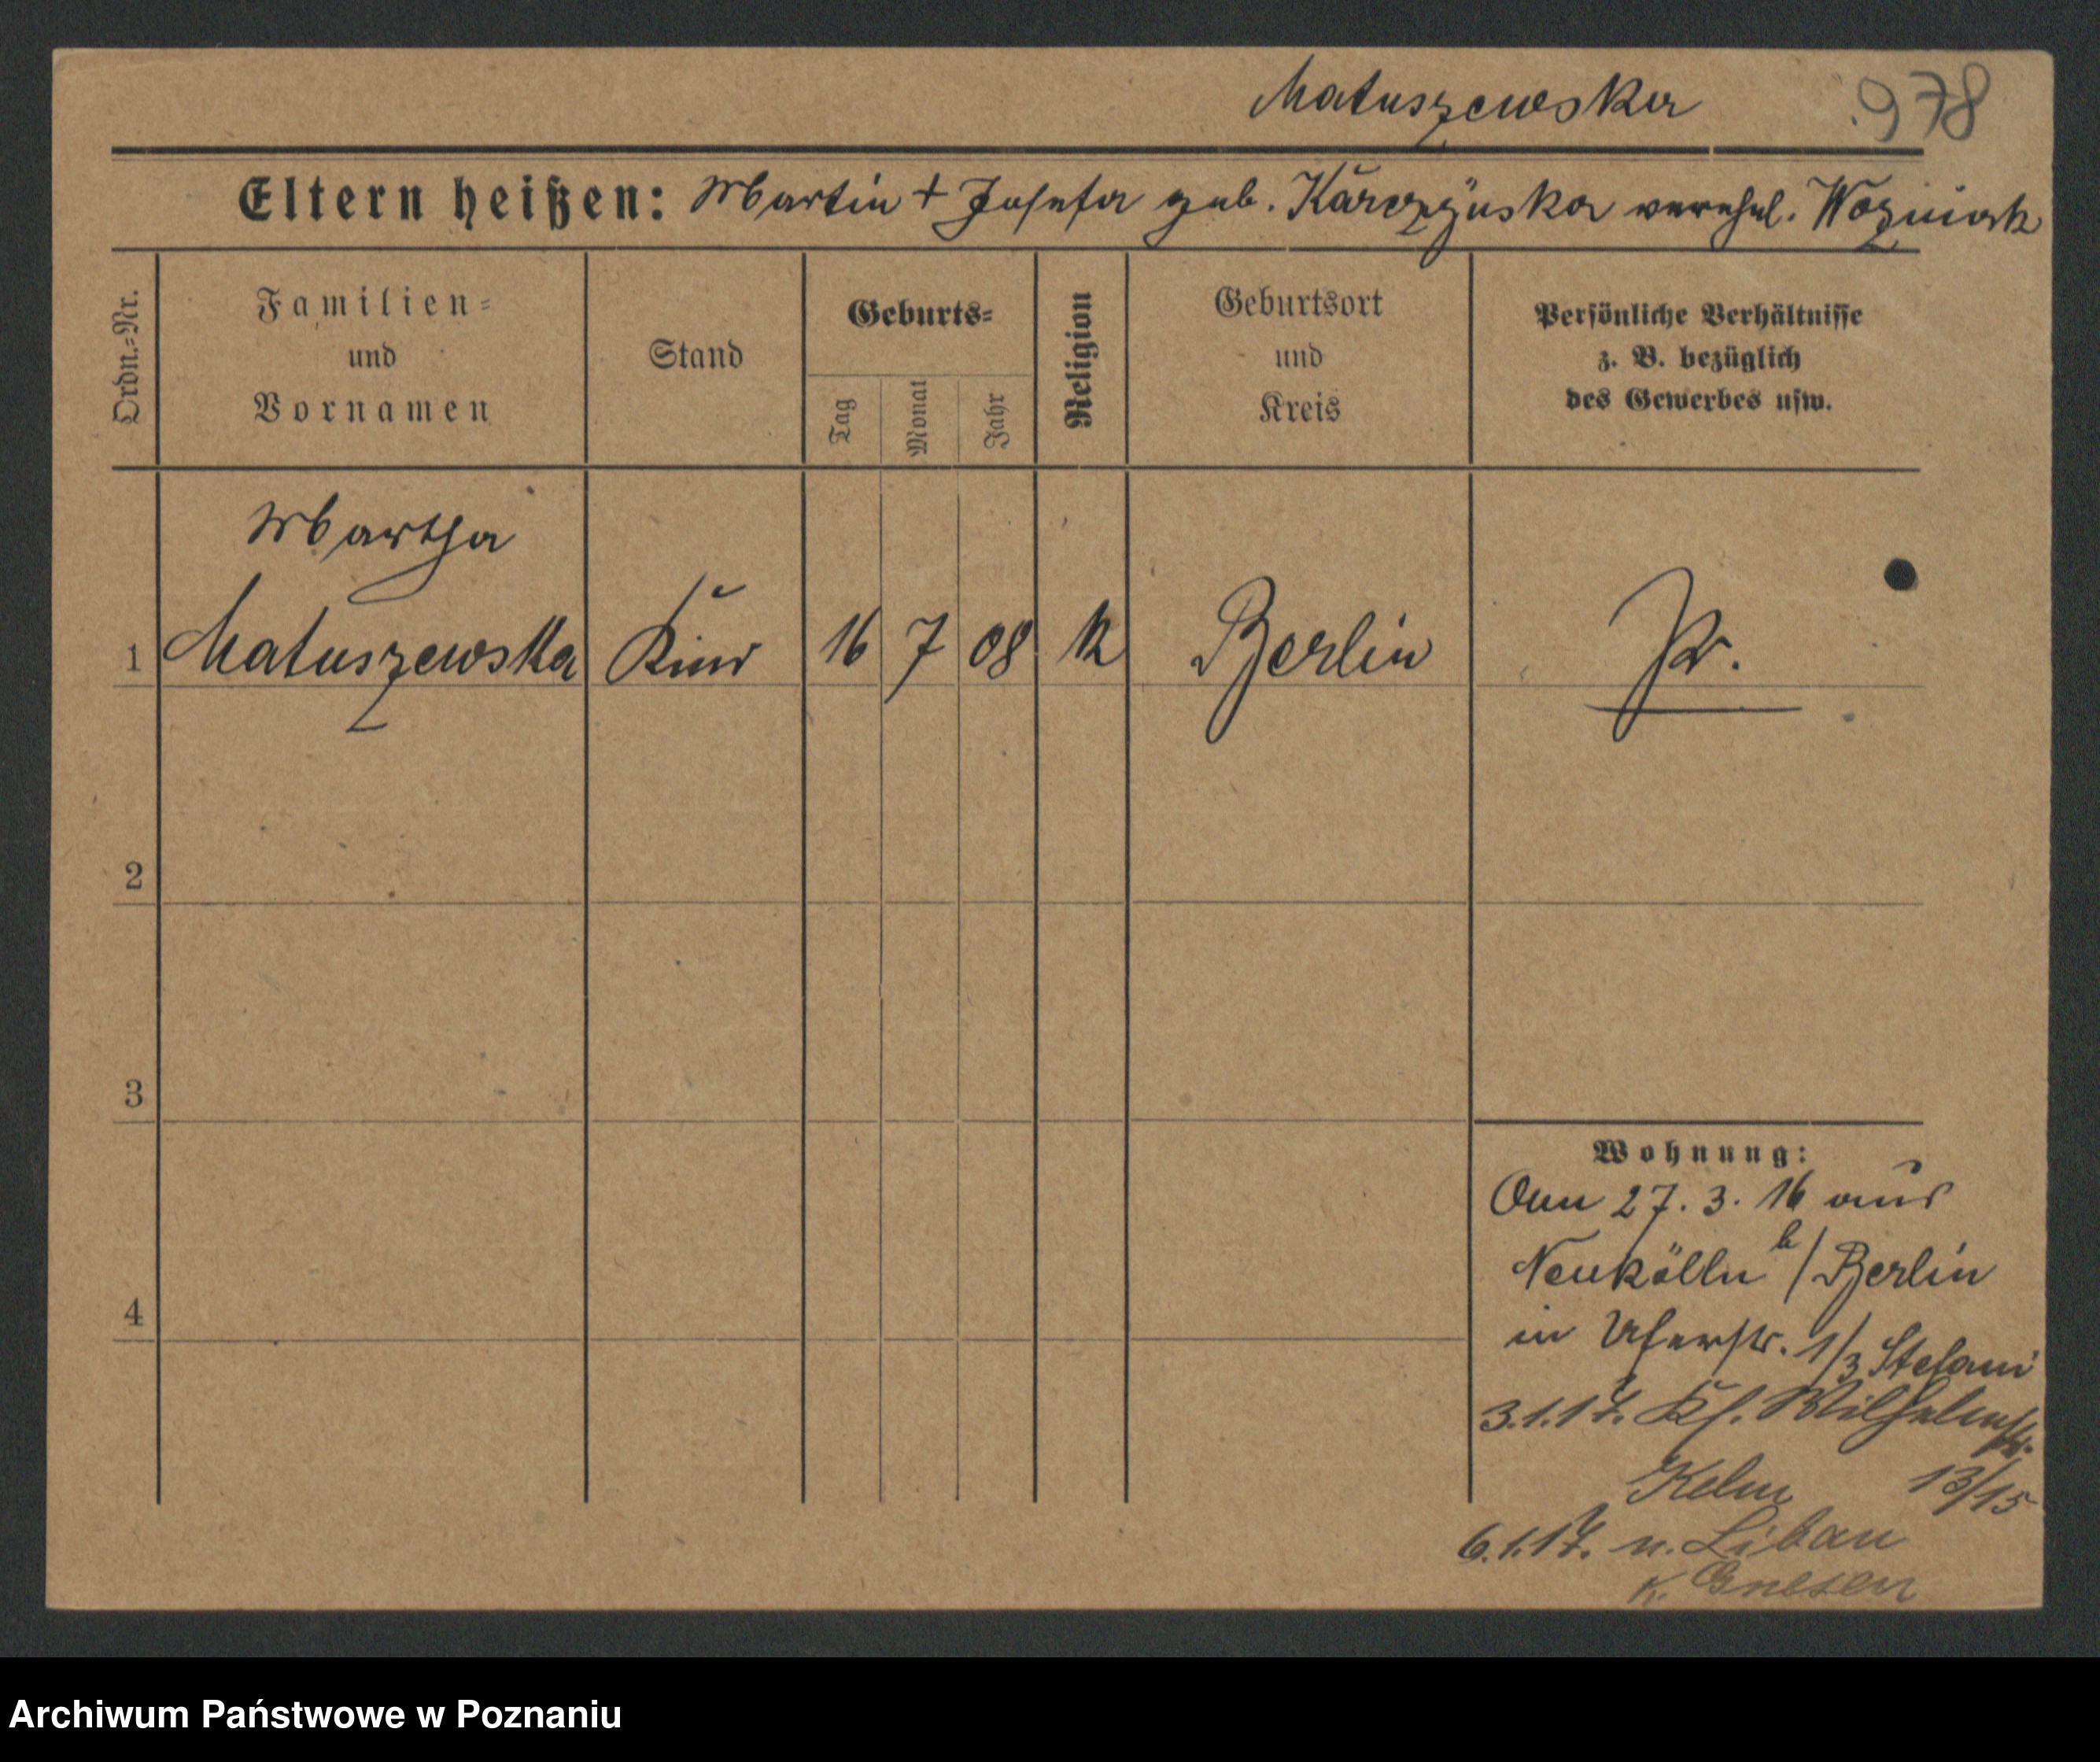 Matuszewska 978
Eltern heißen: Martin + Josefa geb. Karczyńska verehel. Wozniak
Ordn.-Nr.
Familien-
und
Vornamen
Stand
Geburts-
Tag
Monat
Jahr
Religion
Geburtsort
und
Kreis
Persönliche Verhältnisse
z. B. bezüglich
des Gewerbes usw.
Martha
1 Matuszewska Kind 16 7 08 k Berlin Pr.
2
3
4
Wohnung:
27. 3. 16 aus
Neukölln b/Berlin
in Uferstr. 1/3 Stefani
3.1.17. Kl. Wilhelmstr.
Kelm 13/15
6.1.17. n. Libau
K. Gnesen
Archiwum Państwowe w Poznaniu